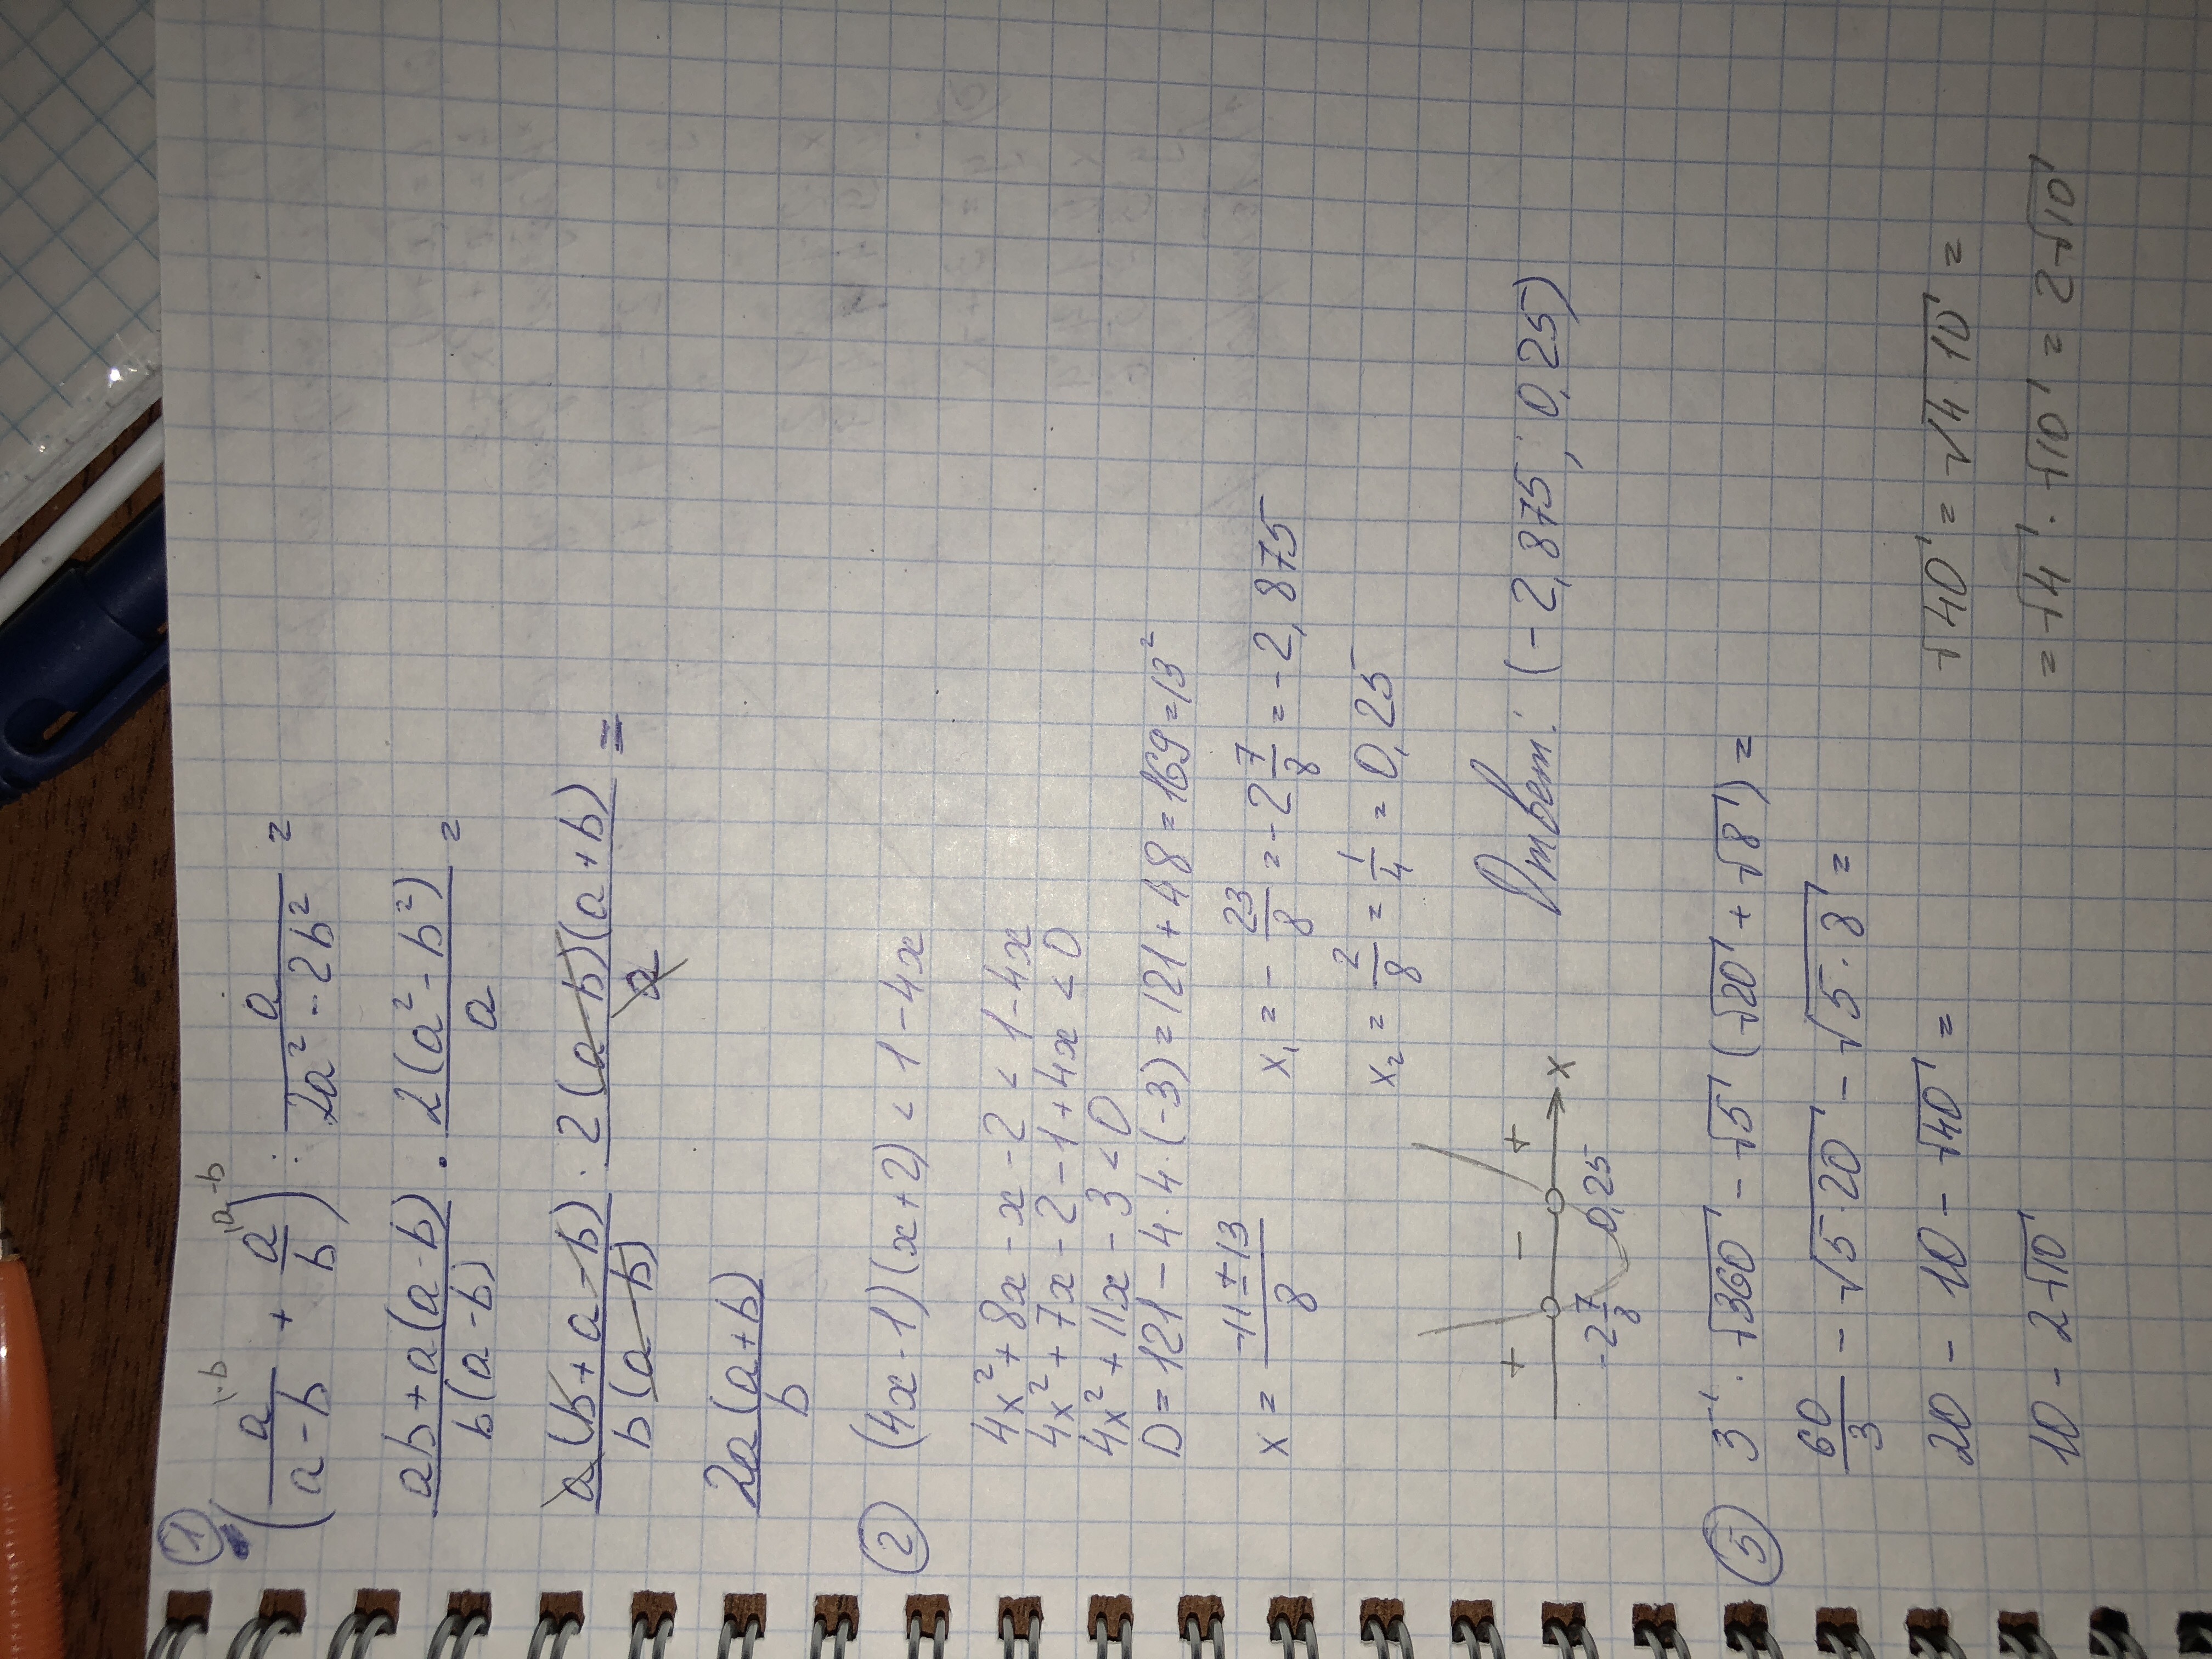 1
(a/(a-b) \·b + a/b \a-b) : a/(2a² - 2b²) =
(ab+a(a-b))/(b(a-b)) · 2(a²-b²)/a =
a(b+a-b)/(b(a-b)) · 2(a-b)(a+b)/a =
2a(a+b)/b
2 (4x-1)(x+2) < 1-4x
4x²+8x-x-2 < 1-4x
4x²+7x-2-1+4x < 0
4x²+11x-3 < 0
D = 121-4·4·(-3) = 121+48 = 169 = 13²
x = (-11±13)/8 x₁ = -23/8 = -2 7/8 = -2,875
x₂ = 2/8 = 1/4 = 0,25
+ - + x
-2 7/8 0,25
Ответ: (-2,875; 0,25)
3 3⁻¹·√360 - √5(√20+√8) =
60/3 - √5·20 - √5·8 =
20 - 10 - √40 = √40 = √4·10 =
10 - 2√10 = √4·√10 = 2√10